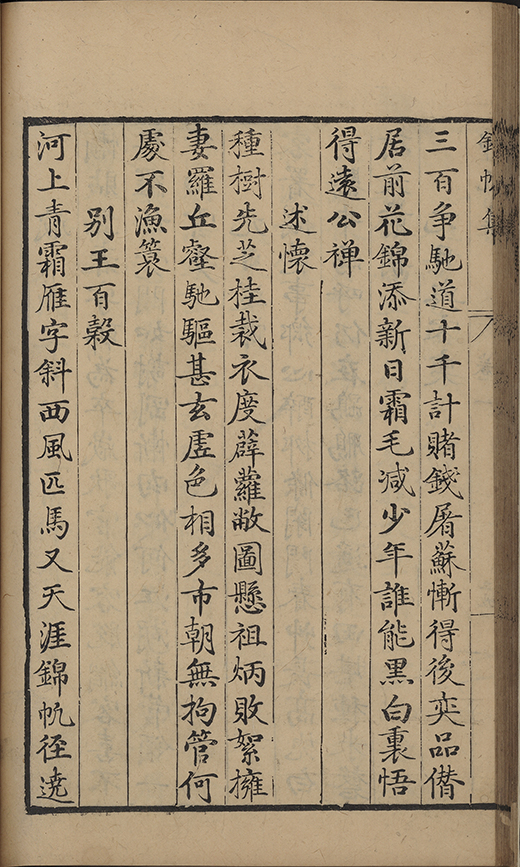 錦帆集
三百争馳道十千計賭錢屠蘇慚得後奕品僭
居前花錦添新日霜毛减少年誰能黑白裏悟
得遠公禅
述懷
種樹先芝桂裁衣度薜蘿敝圖懸祖炳敗絮擁
妻羅丘壑馳驅甚玄虛色相多市朝無拘管何
處不漁簑
别王百穀
河上青霜雁字斜西風匹馬又天涯錦帆徑遶